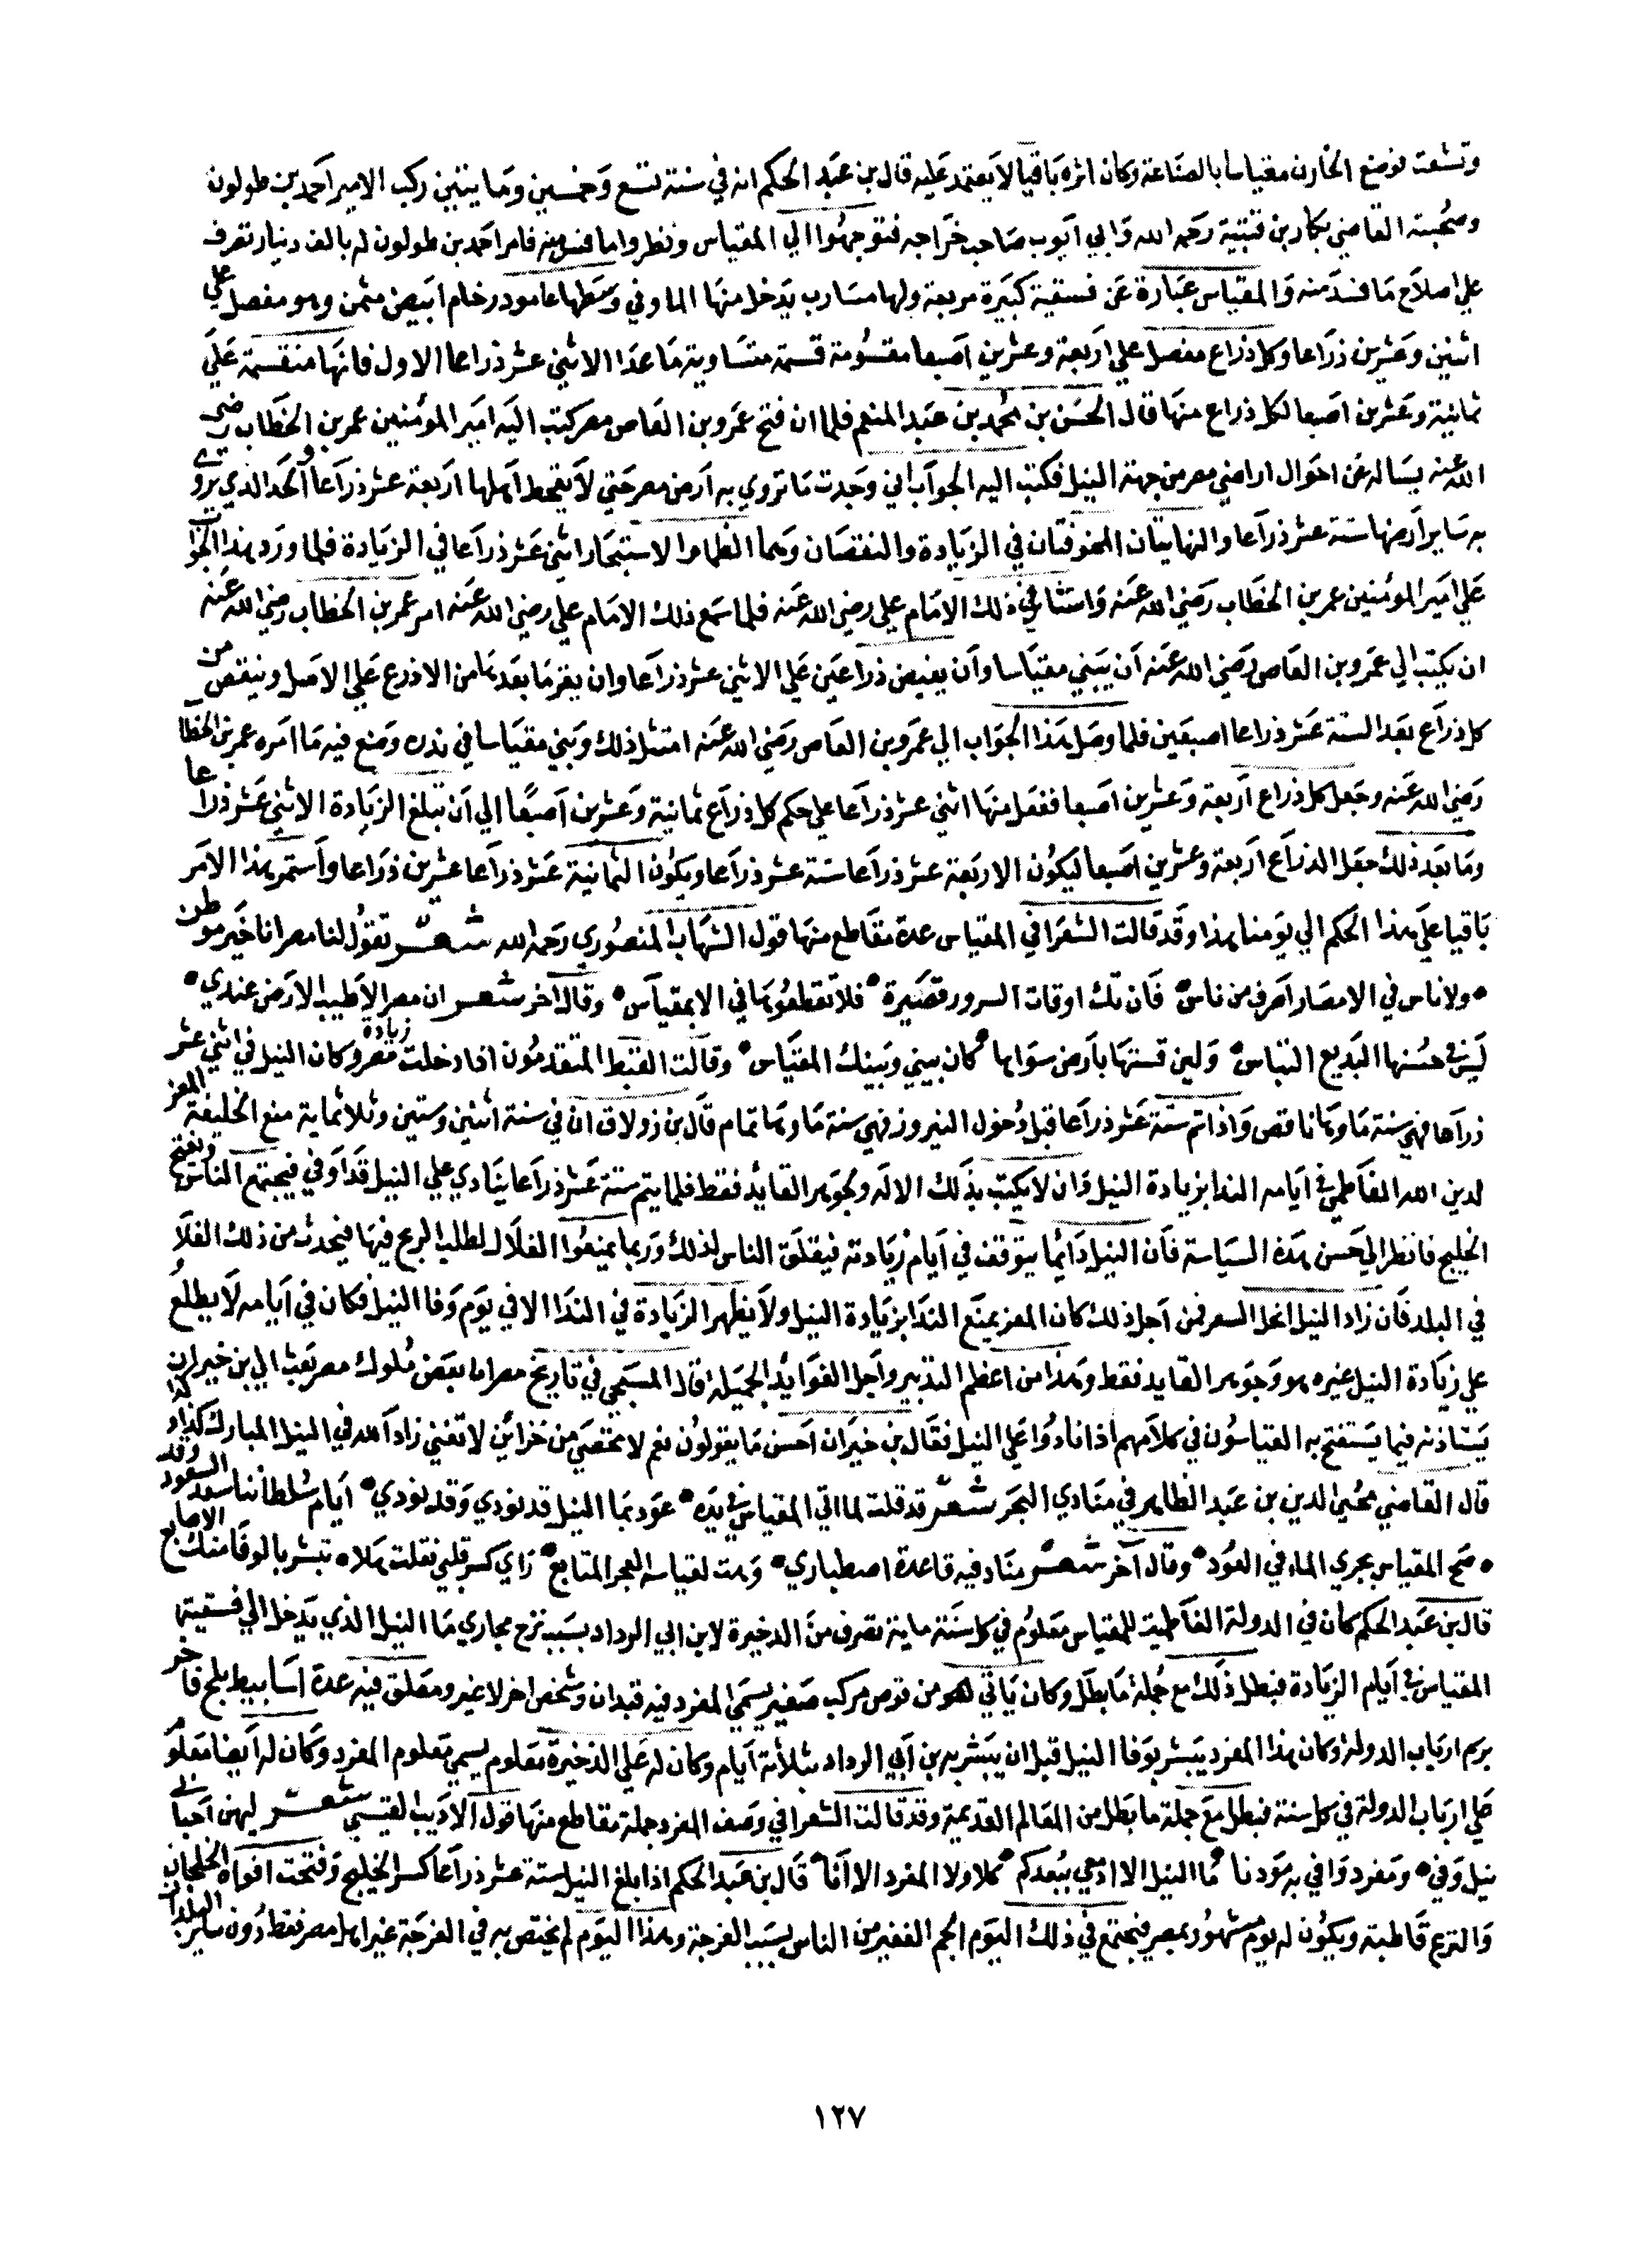 وتشعت فوضع الخازن مقياسا بالصناعة وكان اثره باقيا لا يعتمد عليه قال بن عبد الحكم انه في سنة تسع وخمسين وماينتين ركب الامير احمد بن طولون
وصحبته القاضي بكار بن قتيبة رحمه الله وابي ايوب صاحب خراجه فتوجهوا الي المقياس ونظروا ما فسد منه فامر احمد بن طولون له بالف دينار تصرف
علي اصلاح ما فسد منه والمقياس عبارة عن فسقية كبيرة مربعة ولها مسارب يدخل منها الما وفي وسطها عامود رخام ابيض مثمن وهو مفصل علي
اثنين وعشرين ذراعا وكل ذراع مفصل علي اربعة وعشرين اصبعا مقسومة قسمة متساوية ما عدا الاثني عشر ذراعا الاول فانها منقسمة علي
ثمانية وعشرين اصبعا لكل ذراع منها قال الحسن بن محمد بن عبد المنعم فلما ان فتح عمرو بن العاص مصر كتب اليه امير المومنين عمر بن الخطاب رضي
الله عنه يساله عن احوال اراضي مصر من جهة النيل فكتب اليه الجواب اني وجدت ما تروي به ارض مصر حتي لا يقحط اهلها اربعة عشر ذراعا والحد الذي يروي
به ساير ارضها ستة عشر ذراعا والنهايتان المخوفتان في الزيادة والنقصان وهما الظما والاستبحار اثني عشر ذراعا في الزيادة فلما ورد هذا الجواب
علي امير المومنين عمر بن الخطاب رضي الله عنه واستشار في ذلك الامام علي رضي الله عنه فلما سمع ذلك الامام علي رضي الله عنه امر عمر بن الخطاب رضي الله عنه
ان يكتب الي عمرو بن العاص رضي الله عنه ان يبني مقياسا وان يفيض ذراعين علي الاثني عشر ذراعا وان يقر ما بعدها من الاذرع علي الاصل وينقص من
كل ذراع بعد الستة عشر ذراعا اصبعين فلما وصل هذا الجواب الي عمرو بن العاص رضي الله عنه امتثل ذلك وبني مقياسا في وضع فيه ما امره عمر بن الخطاب
رضي الله عنه وجعل كل ذراع اربعة وعشرين اصبعا ففعل منها اثني عشر ذراعا علي حكم كل ذراع ثمانية وعشرين اصبعا الي ان تبلغ الزيادة الاثني عشر ذراعا
وما بعد ذلك جعل الذراع اربعة وعشرين اصبعا ليكون الاربعة عشر ذراعا ستة عشر ذراعا ويكون الثمانية عشر ذراعا عشرين ذراعا واستمر هذا الامر
باقيا علي هذا الحكم الي يومنا هذا وقد قالت الشعرا في المقياس عدة مقاطع منها قول الشهاب المنصوري رحمه الله شعر تقول لنا مصر انا خير موطن
ولا ناس في الامصار اعرف من ناس فان تك اوقات السرور قصيرة فلا تقطعوها في الا بمقياس وقال اخر شعر ان مصر الاطيب الارض عندي
ليس في حسنها البديع التباس ولين قستها بارض سواها كان بيني وبينك المقياس وقالت القبط المتقدمون اذا دخلت مصرو كان زيادة النيل في اثني عشر
ذراعا فهي سنة ما وها ناقص واذا تم ستة عشر ذراعا قبل دخول النيروز فهي سنة ما وها تمام قال بن زولاق ان في سنة اثنين وستين وثلاثماية منع الخليفة المعز
لدين الله الفاطمي في ايامه الندا بزيادة النيل وان لا يكتب بذلك الا له ولجوهر القايد فقط فلما يتم ستة عشر ذراعا ينادي علي النيل قد اوفي فيجتمع الناس ويفتح
الخليج فانظر الي حسن هذه السياسة فان النيل دايما يتوقف في ايام زيادته فيقلق الناس لذلك وربما يمنعوا الغلال لطلب الربح فيها فيحدث من ذلك الغلا
في البلد فان زاد النيل انحل السعر فمن اجل ذلك كان المعز يمنع الندا بزيادة النيل ولا يظهر الزيادة في الندا الا في يوم وفا النيل فكان في ايامه لا يطلع
علي زيادة النيل غيره هو وجوهر القايد فقط وهذا من اعظم التدبير واجل الفوايد الجميلة قال المسبحي في تاريخ مصر ان بعض ملوك مصر بعث الي بن خيران
يستاذنه فيما يستفتح به القياسون في كلامهم اذا نادوا علي النيل فقال بن خيران احسن ما يقولون نعم لا تحصي من خزائن لا تفني زاد الله في النيل المبارك كذا وكذا
قال القاضي محيي الدين بن عبد الظاهر في منادي البحر شعر قد قلت لما اتي المقياس في يده عود بما النيل قد نودي وقد نودي ايام سلطاننا سعد السعود وقد
صح المقياس بجري الماء في العود وقال اخر شعر مناد فيه قاعدة اصطباري وهت لقياسه البحر المتابع راي كسر قلبي فقلت هلا تبشر بالوفا منك الاصابع
قال بن عبد الحكم كان في الدولة الفاطمية للمقياس معلوم في كل سنة ماية تصرف من الذخيرة لابن ابي الرداد بسبب نزح مجاري ما النيل الذي يدخل الي فسقية
المقياس في ايام الزيادة فبطل ذلك مع جملة ما بطل وكان ياتي لهم من قوص مركب صغير يسمي المفرد فيه قبدان وشخص اخر لا غير ومعلق فيه عدة اسابيط بلح فاخر
برسم ارباب الدولة وكان هذا المفرد يبشر بوفا النيل قبل ان يبشر به بن ابي الرداد بثلاثة ايام وكان له علي الذخيرة معلوم يسمي معلوم المفرد وكان له ايضا معلوم
علي ارباب الدولة في كل سنة فبطل مع جملة ما بطل من المعالم القديمة وقد قالت الشعرا في وصف المفرد جملة مقاطع منها قول الاديب القيسي شعر ليهن احبابي
نيل وفي ومفرد وافي به عودنا ما النيل الا ادمعي ببعدكم كلا ولا المفرد الا انا قال بن عبد الحكم اذا بلغ النيل ستة عشر ذراعا كسر الخليج وفتحت افواه الخلجان
والترع قاطبة ويكون له يوم مشهور بمصر فيجتمع في ذلك اليوم الجم الغفير من الناس بسبب الفرجة وهذا اليوم لم يختص به في الفرجة غير اهل مصر فقط دون ساير البلدان
١٢٧